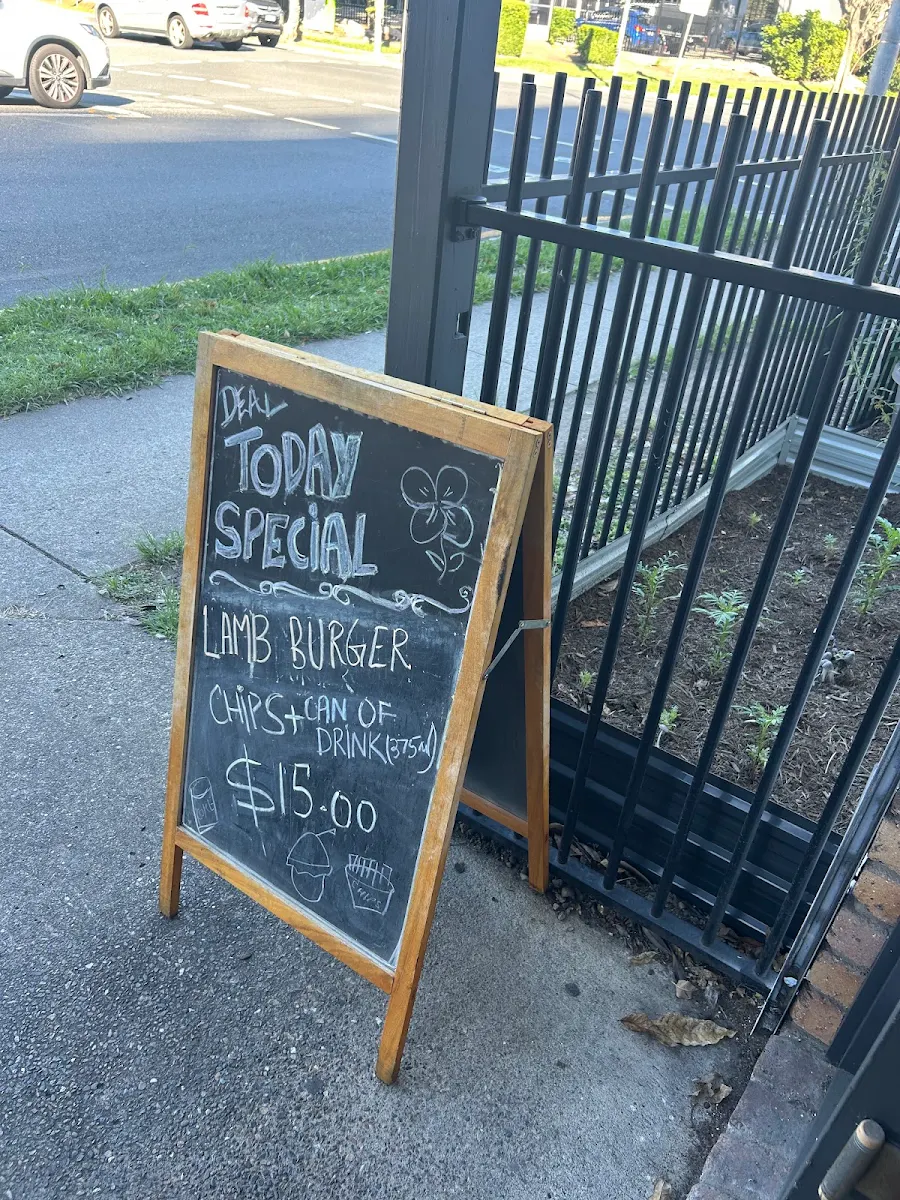 DEAL
TODAY
SPECiAL
LAMB BURGER
CHiPS+CAN OF
DRINK(375ml)
$15.00